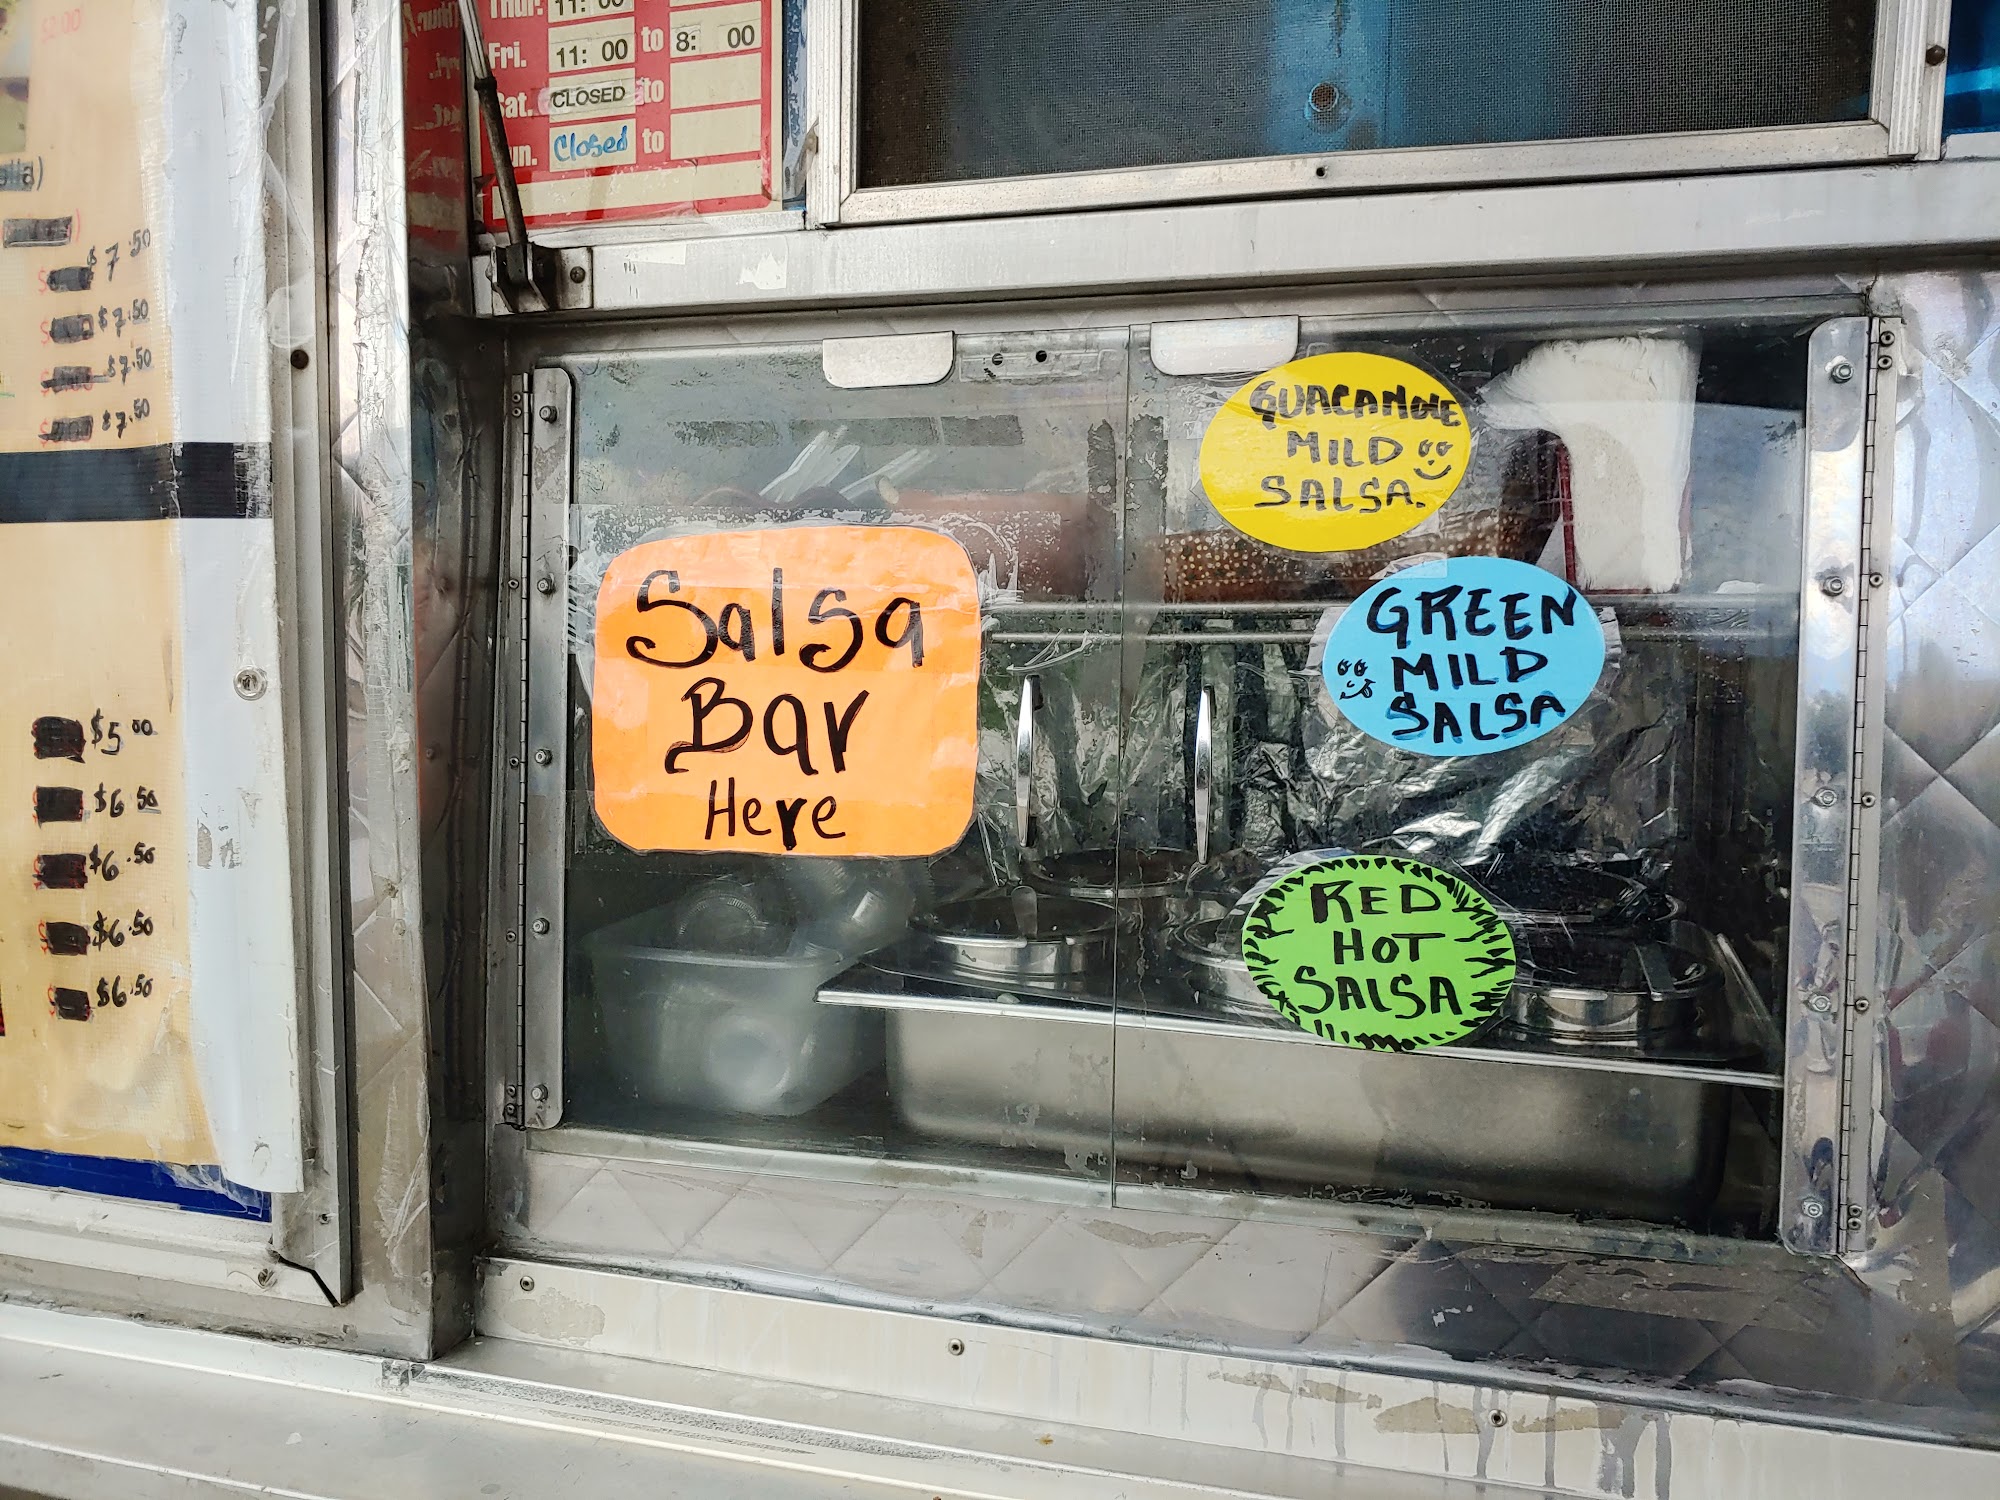 $7.50
$7.50
$7.50
$7.50
$5.00
$6.50
$6.50
$6.50
$6.50
Thur. 11: 00
Fri. 11: 00 to 8: 00
Sat. CLOSED to
Closed to
Salsa
Bar
Here
GUACAMOLE
MILD
SALSA.
GREEN
MILD
SALSA
RED
HOT
SALSA